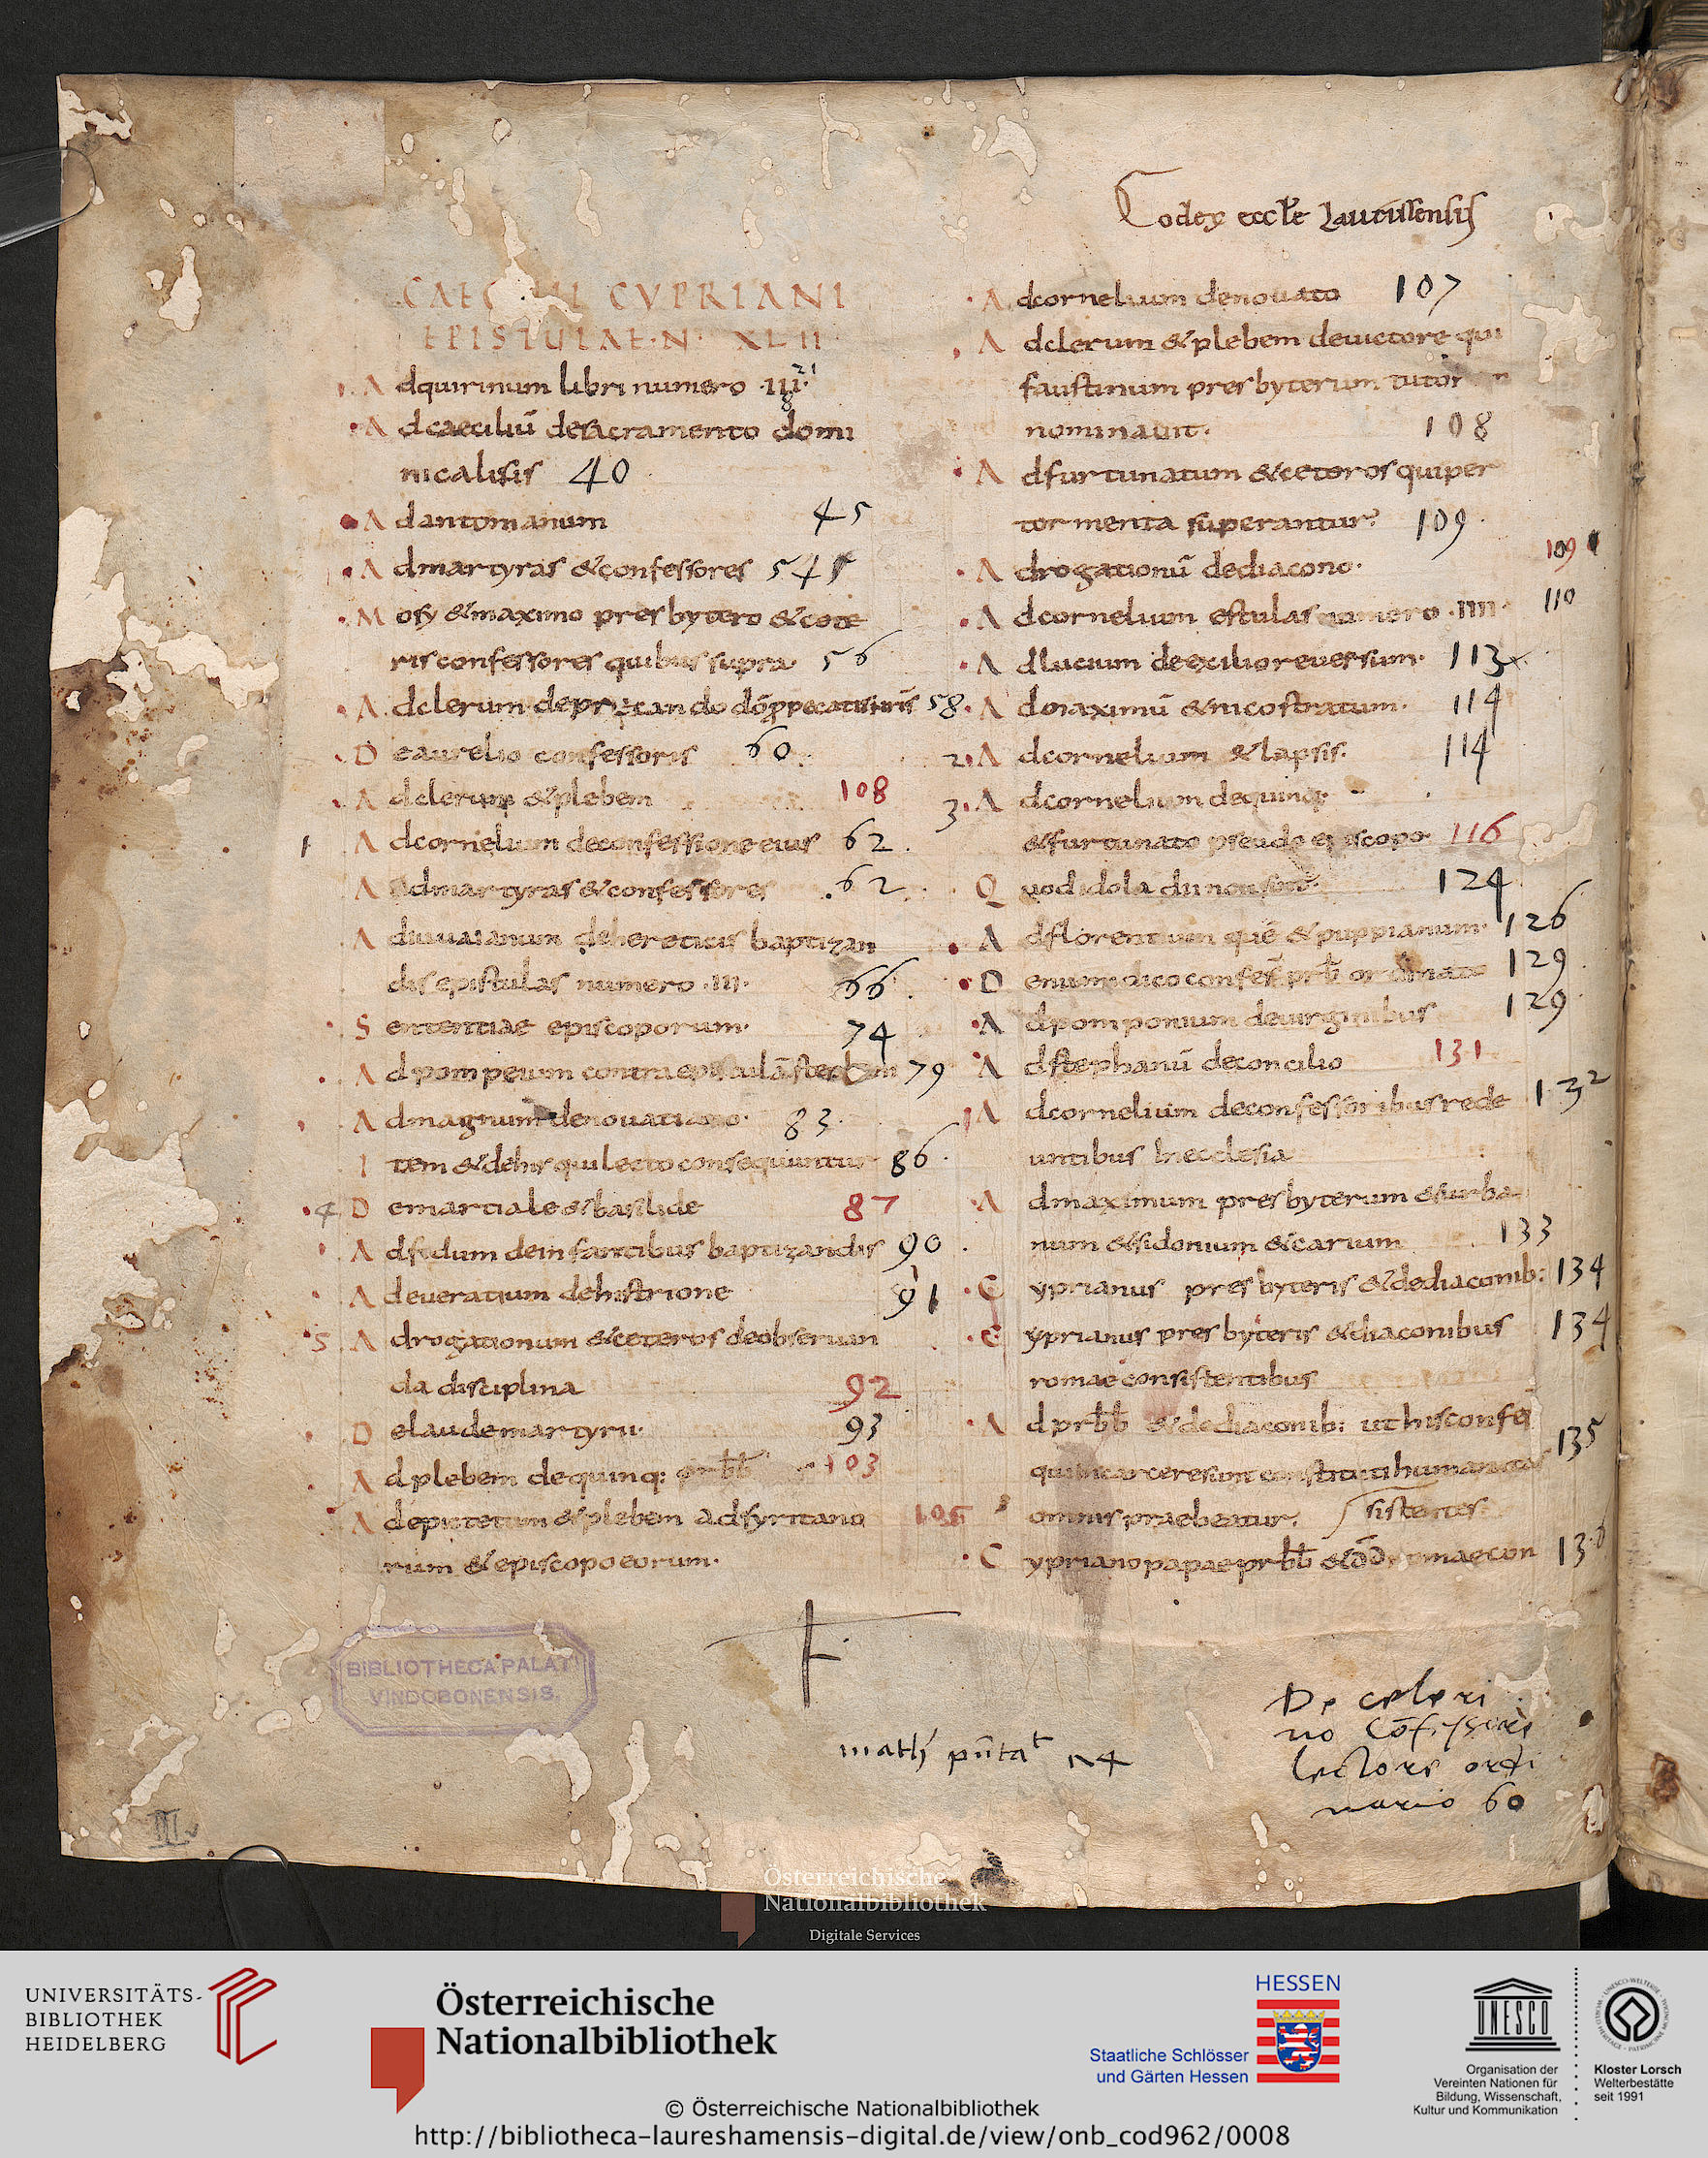 Codex eccl̄e Laurissensis
CAEC CYPRIANI
EPISTULAE·N· XLII
Adquirinum libri numero ·III·
Adcaeciliū desacramento domi
nicalisis 40
Adantonianum 45
Admartyras &confessores 545
Mosy &maximo presbytero &cete
risconfessores quibussupra· 56
Adclerum deprecando 58
Deaurelio confessoris 60
Adclerum &plebem 108
1 Adcornelium deconfessioneeius 62
Admartyras&confessores 62
Adiuuaianum dehereticis baptizan
dis epistulas numero ·III· 66
Sententiae episcoporum· 74
Adpompeium contra 79
Admagnum denouatiano· 83
Item &dehis quilecto consequuntur 86
4 Demartiale&basilide 87
Adfidum deinfantibus baptizandis 90
Adeucratium dehistrione 91
5 Adrogationum &ceteros deobseruan
da disciplina 92
Delaudemartyrii· 93
Adplebem dequinq: prb̄b̄ 103
Adepictetum &plebem adsyritano
rum &episcopoeorum·
Adcornelium denouato 107
Adclerum &plebem deuictore qui
faustinum presbyterum tutorem
nominauit· 108
Adfurtunatum &ceteros quiper
tormenta superantur 109
Adrogationū dediacono· 109
Adcornelium estulas numero ·IIII· 110
Adlucium deexilioreuersum· 113
Admaximū &nicostratum· 114
2 Adcornelium &lapsis· 114
3 Adcornelium dequinq·
&furtunato pseudo episcopo· 116
Quodidola dii non 124
Adflorentium quē &puppianum· 126
Denumidico confes̄ prb̄ ordinato 129
Adpomponium deuirginibus 129
Adstephanū deconcilio 131
Adcornelium deconfessoribusrede 132
untibus Inecclesia
Admaximum presbyterum &urba
num &sidonium &carium 133
Cyprianus presbyteris &dediaconib: 134
Cyprianus presbyteris &diaconibus 134
romae consistentibus
Adprb̄b̄ &dediaconib: uthisconfes
quiincarceresunt constitutihumanitas 135
omnis praebeatur· sistentes·
Cyprianopapaeprb̄b̄ romaecon
BIBLIOTHECA PALAT·
VINDOBONENSIS.
De celeri
no Cōfessore
lectore ordi
nario 60
III
Österreichische
Nationalbibliothek
Digitale Services
UNIVERSITÄTS-
BIBLIOTHEK
HEIDELBERG
Österreichische
Nationalbibliothek
HESSEN
Staatliche Schlösser
und Gärten Hessen
UNESCO
Organisation der
Vereinten Nationen für
Bildung, Wissenschaft,
Kultur und Kommunikation
WORLD HERITAGE · PATRIMOINE MONDIAL
Kloster Lorsch
Welterbestätte
seit 1991
© Österreichische Nationalbibliothek
http://bibliotheca-laureshamensis-digital.de/view/onb_cod962/0008